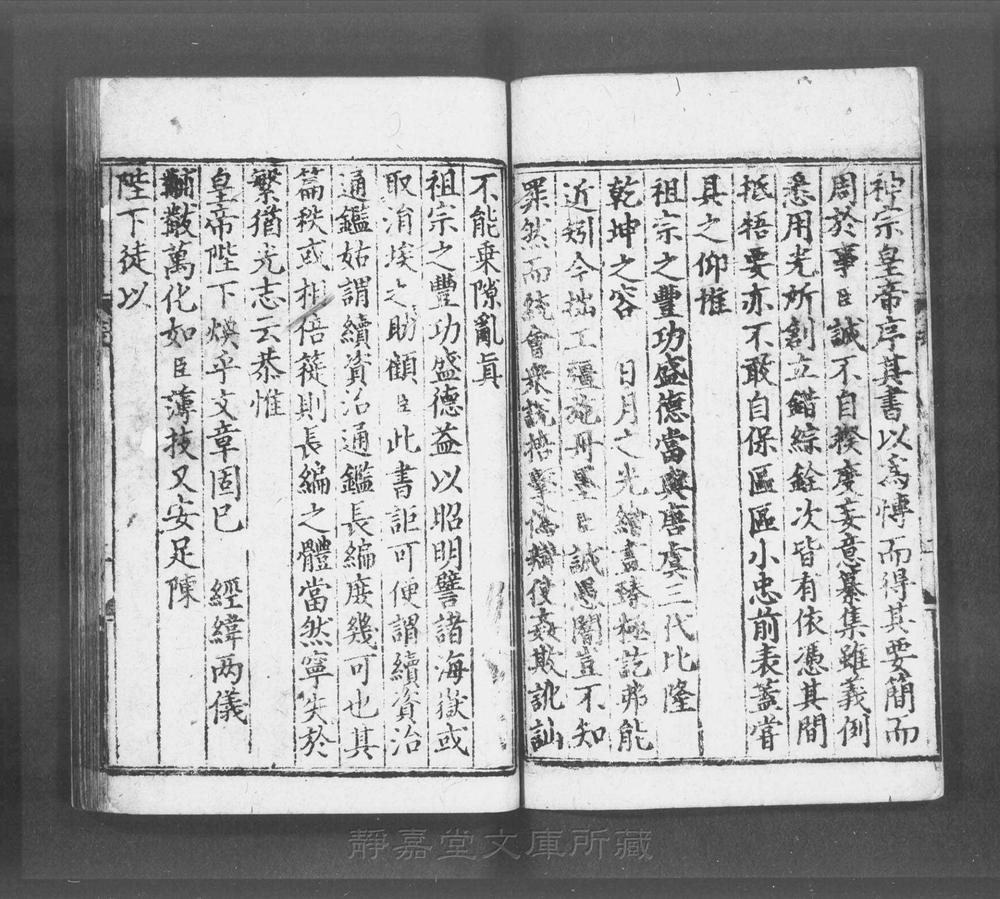 神宗皇帝序其書以爲愽而得其要簡而
周於事臣誠不自揆度妄意纂集雖義例
悉用光所創立錯綜銓次皆有依憑其間
抵牾要亦不敢自保區區小忠前表蓋嘗
具之仰惟
祖宗之豐功盛德當與唐虞三代比隆
乾坤之容 日月之光繪畫臻極訖弗能
近矧今拙工彊施丹墨臣誠愚闇豈不知
罪然而統會衆說掊擊僞辯使姦欺訛訕
不能乗隙亂眞
祖宗之豐功盛德益以昭明譬諸海嶽或
取涓埃之助顧臣此書詎可便謂續資治
通鑑姑謂續資治通鑑長編庶幾可也其
篇秩或相倍蓰則長編之體當然寧失於
繁猶光志云恭惟
皇帝陛下煥乎文章固已 經緯两儀
黼黻萬化如臣薄技又安足陳
陛下徒以
靜嘉堂文庫所藏